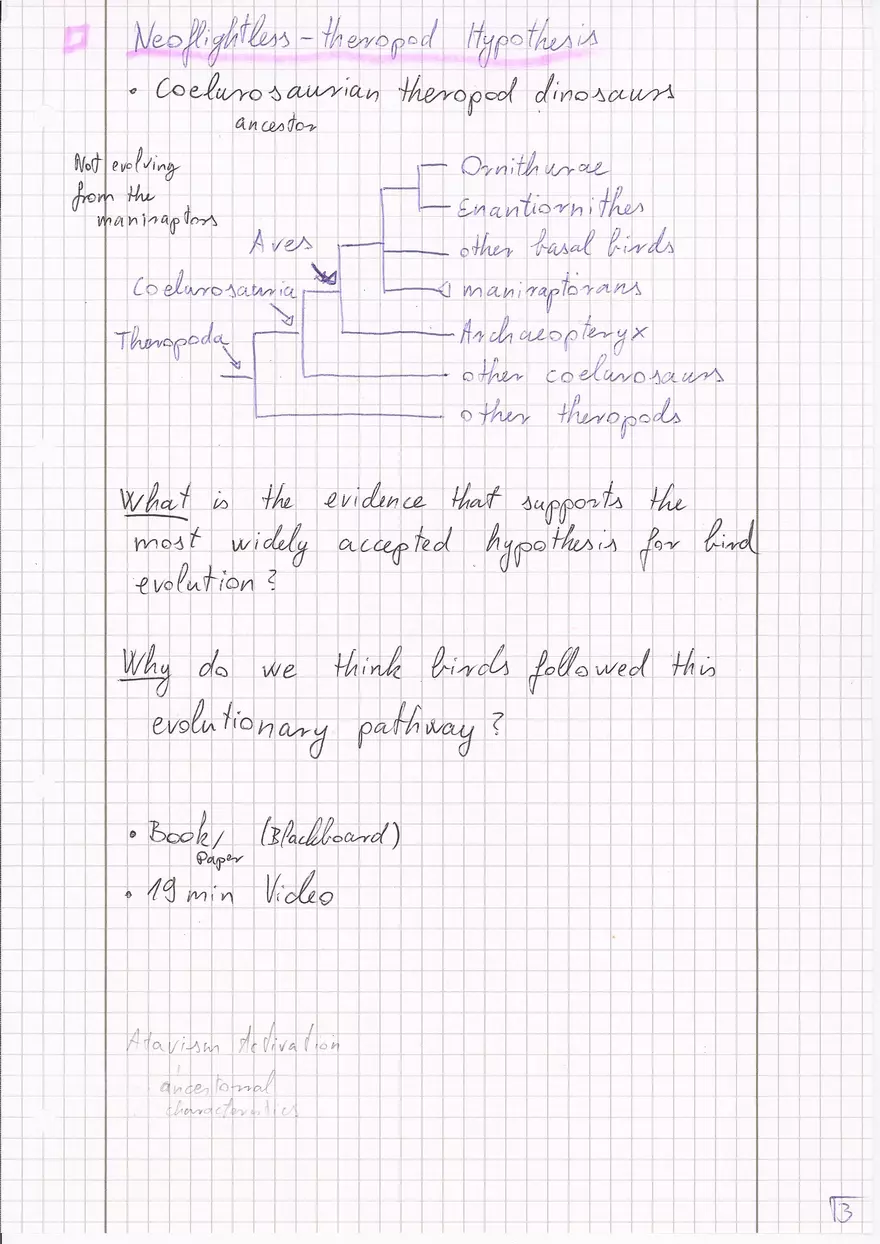 Neoflightless-theropod Hypothesis
• Coelurosaurian theropod dinosaurs
ancestor
Not evolving
from the
maniraptors
Ornithurae
Enantiornithes
Aves
other basal birds
Coelurosauria
maniraptorans
Theropoda
Archaeopteryx
other coelurosaurs
other theropods
What is the evidence that supports the
most widely accepted hypothesis for bird
evolution?
Why do we think birds followed this
evolutionary pathway?
• Book/ (Blackboard)
Paper
• 19 min Video
Atavism Activation
ancestorral
characteristics
13